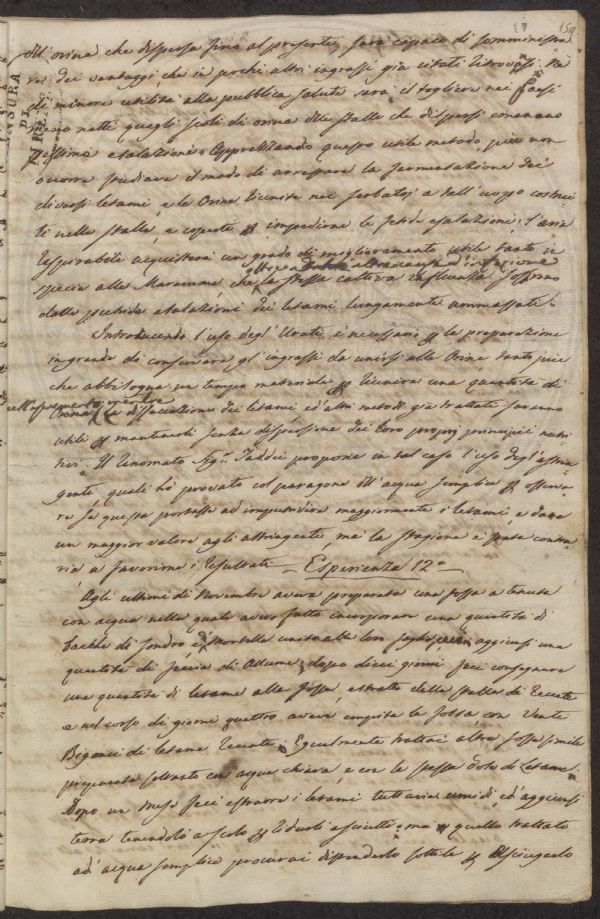 159
Dell'orina che dispersa fino al presente, sarà capace di somministra
re dei vantaggi, che in pochi altri ingrassi già citati ritrovasi. Nè
di minore utilità alla pubblica salute sarà il togliere nei Paesi
meno netti quegli scoli di orina delle stalle che dispersi emanano
pessime esalazioni. Apprezzando questo utile metodo, più non
occorre studiare il modo di arrestare la fermentazione dei
diversi letami, e le Orine riunite nei serbatoj a tell'uopo costrui
ti nelle stalle, e coperte impedirne le fetide esalazioni; l'aria
respirabile acquisterà un grado di miglioramento utile tanto in
oltre a altre cause d'infezione
specie alle Maremme, che la stessa cattiva influenza soffrono
dalle putride esalazioni dei letami lungamente ammassate.
Introducendo l'uso degl'Urati è necessario la preparazione
in grande di conservare gl'ingrassi da unirsi alle Orine tanto più
che abbisogna un tempo materiale riunire una quantità di
Orina. La dissecazione dei letami ed altri metodi già trattati saranno
utili mantenerli senza dispersione dei loro proprj principii nutri
tivi. Il rinomato Sig.r Taddei propone in tal caso l'uso degl'astrin
genti, quali hò provato col paragone dell'acqua semplice osserva
re se questa portasse ad imputridire maggiormente i letami, e dare
un maggior valore agli astringenti, ma la stagione è stata contra
ria a favorirne i resultati — Esperienza 12.a
Agli ultimi di Novembre aveva preparata una fossa a tenuta
con acqua nella quale avevo fatto incorporare una quantità di
bacche di Sondro e Mortella unite alle loro foglie, aggiunsi una
quantità di feccia di Allume; dopo dieci giorni feci consegnare
una quantità di letame alla fossa, estratto dalla stalla di recente
e nel corso di giorni quattro aveva empita la fossa, con Venti
Bigonci di letame recente. Egualmente trattai altra fossa simile
preparata soltanto con acqua chiara, e con la stessa dose di Letame.
Dopo un mese feci estrarre i letami tuttavia umidi, ed aggiunsi
terra tenendoli a scolo ridurli asciutti: ma quello trattato
ad acqua semplice procurai distenderlo sottile asciugarlo